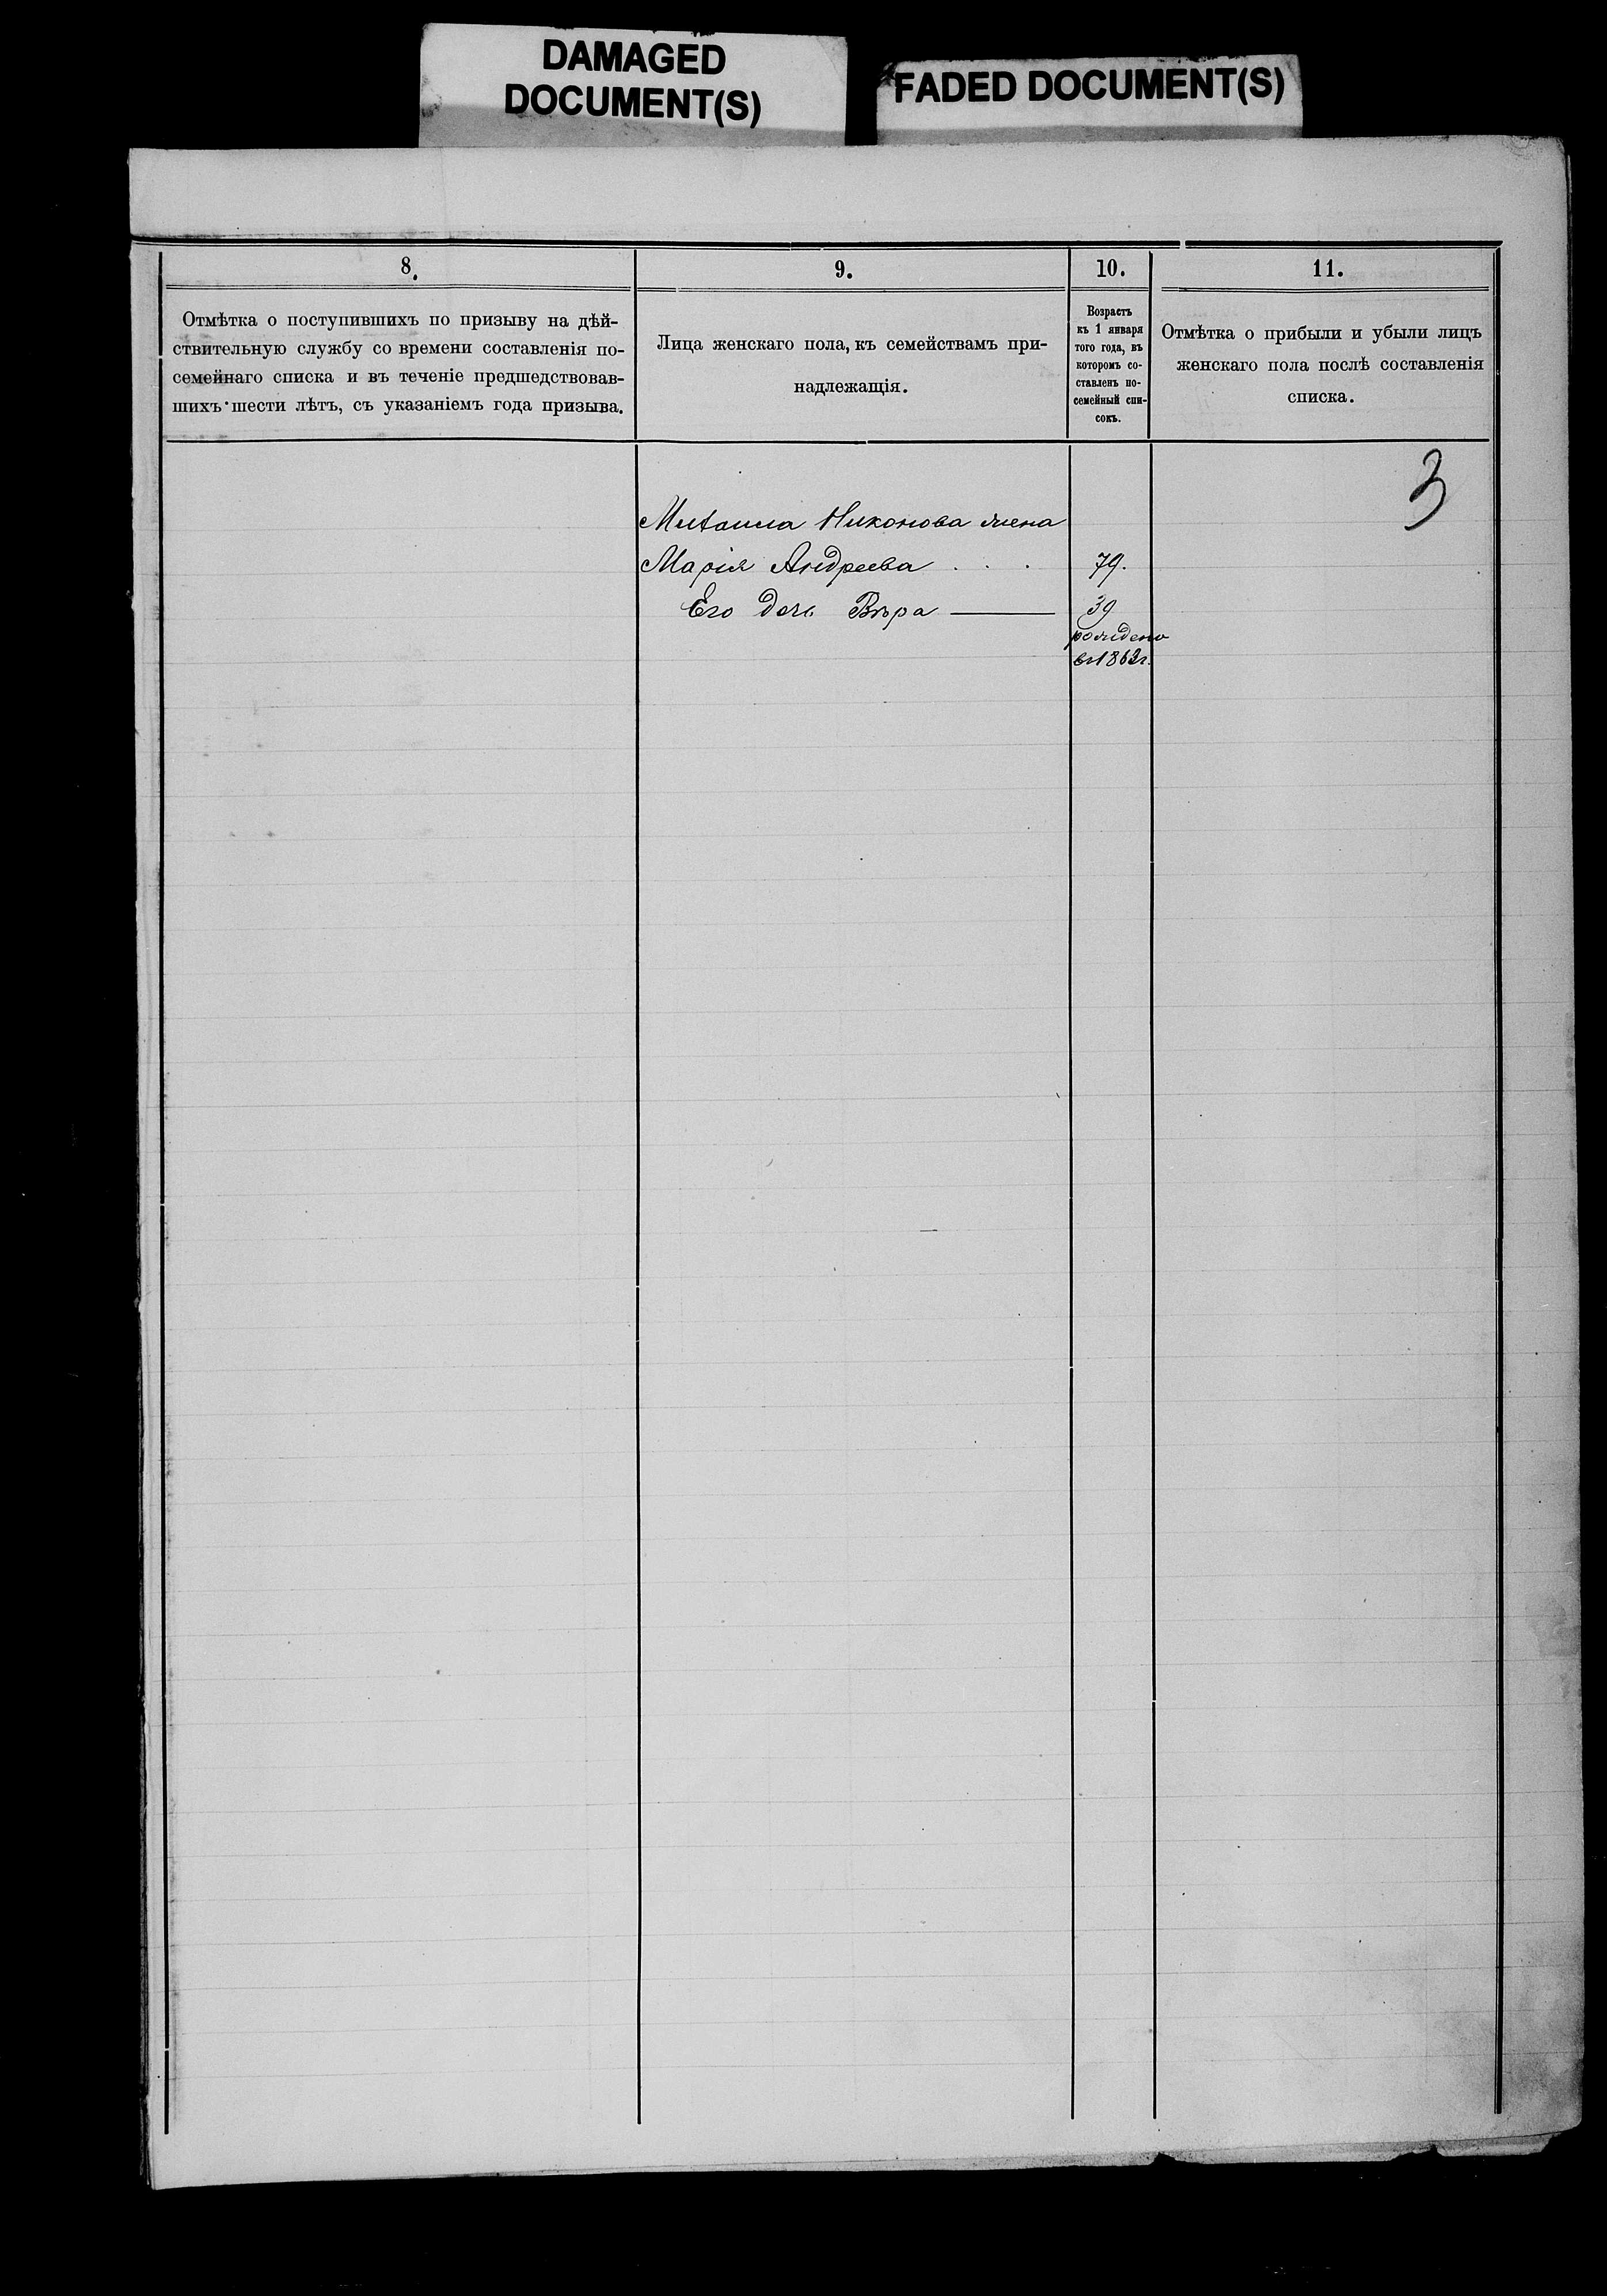 DAMAGED
DOCUMENT(S)
FADED DOCUMENT(S)
8.
Отмѣтка о поступившихъ по призыву на дѣй-
ствительную службу со времени составленія по-
семейнаго списка и въ теченіе предшедствовав-
шихъ шести лѣтъ, съ указаніемъ года призыва.
9.
Лица женскаго пола, къ семействамъ при-
надлежащія.
10.
Возрастъ
къ 1 января
того года, въ
которомъ со-
ставленъ по-
семейный спи-
сокъ.
11.
Отмѣтка о прибыли и убыли лицъ
женскаго пола послѣ составленія
списка.
3
Михаила Никонова жена
Марія Андреева . . . 79.
Его дочь Вѣра — 39
рождена
въ 1862г.